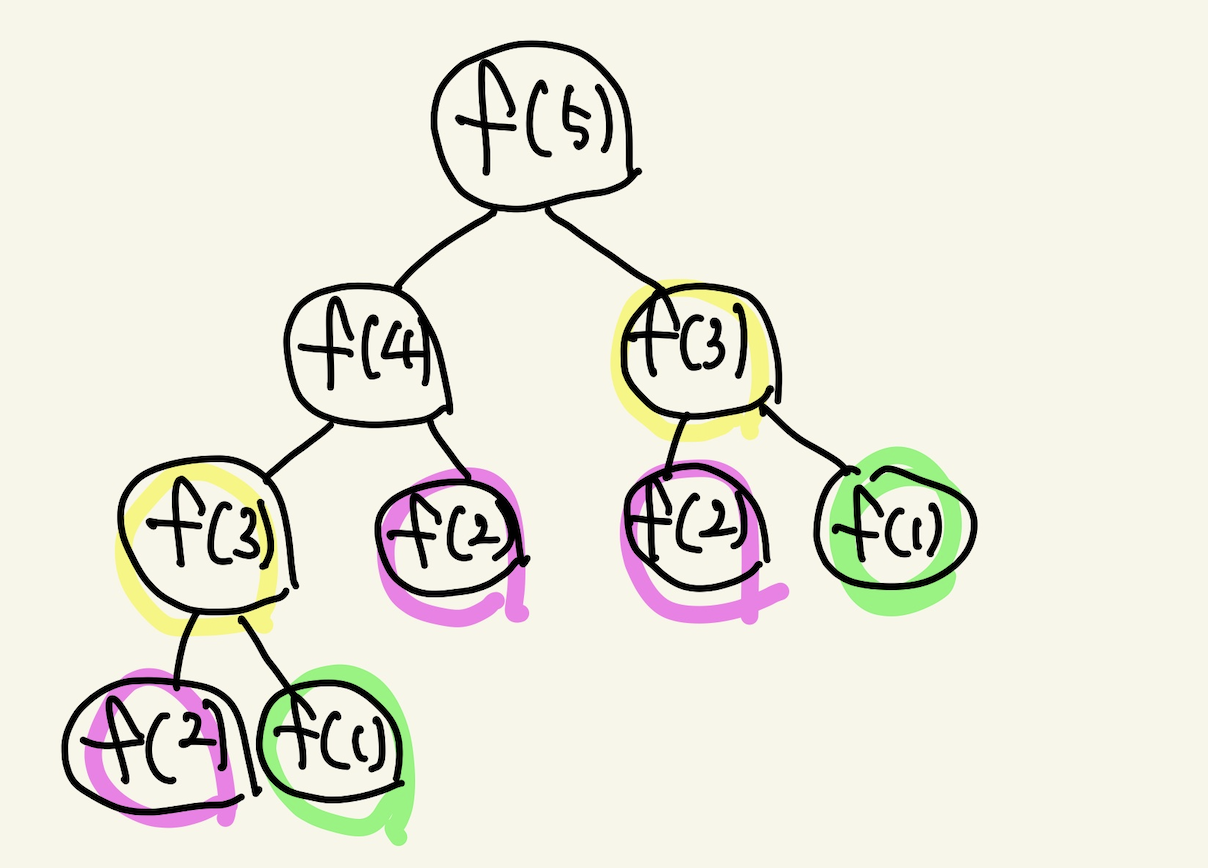 f(5)
f(4)
f(3)
f(3)
f(2)
f(2)
f(1)
f(2)
f(1)